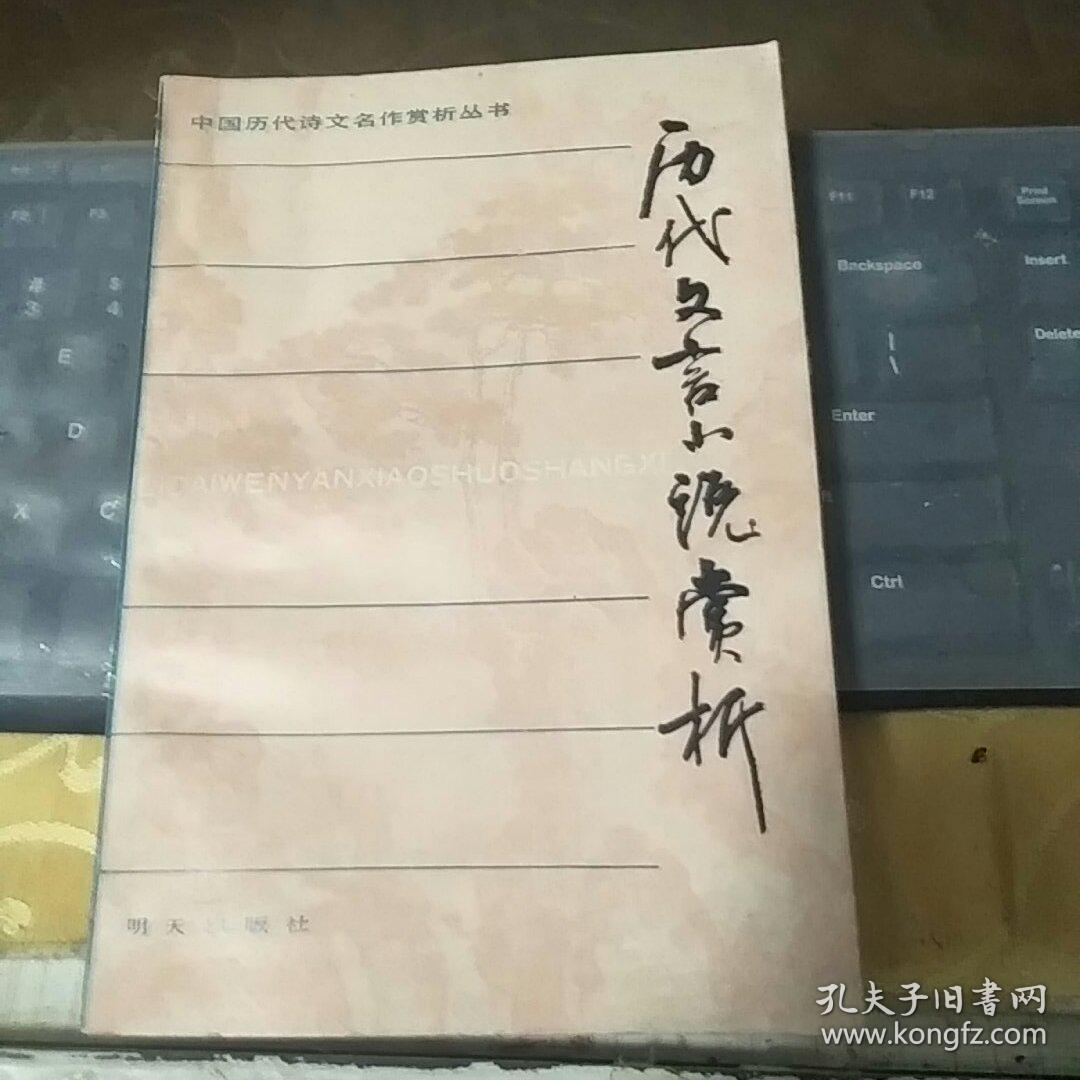 中国历代诗文名作赏析丛书
历代文言小说赏析
LIDAIWENYANXIAOSHUOSHANGXI
明天出版社
F2
F3
3
$
4
E
D
X
C
F11
F12
Print
Screen
Backspace
Insert
|
\
Delete
Enter
Ctrl
孔夫子旧書网
www.kongfz.com